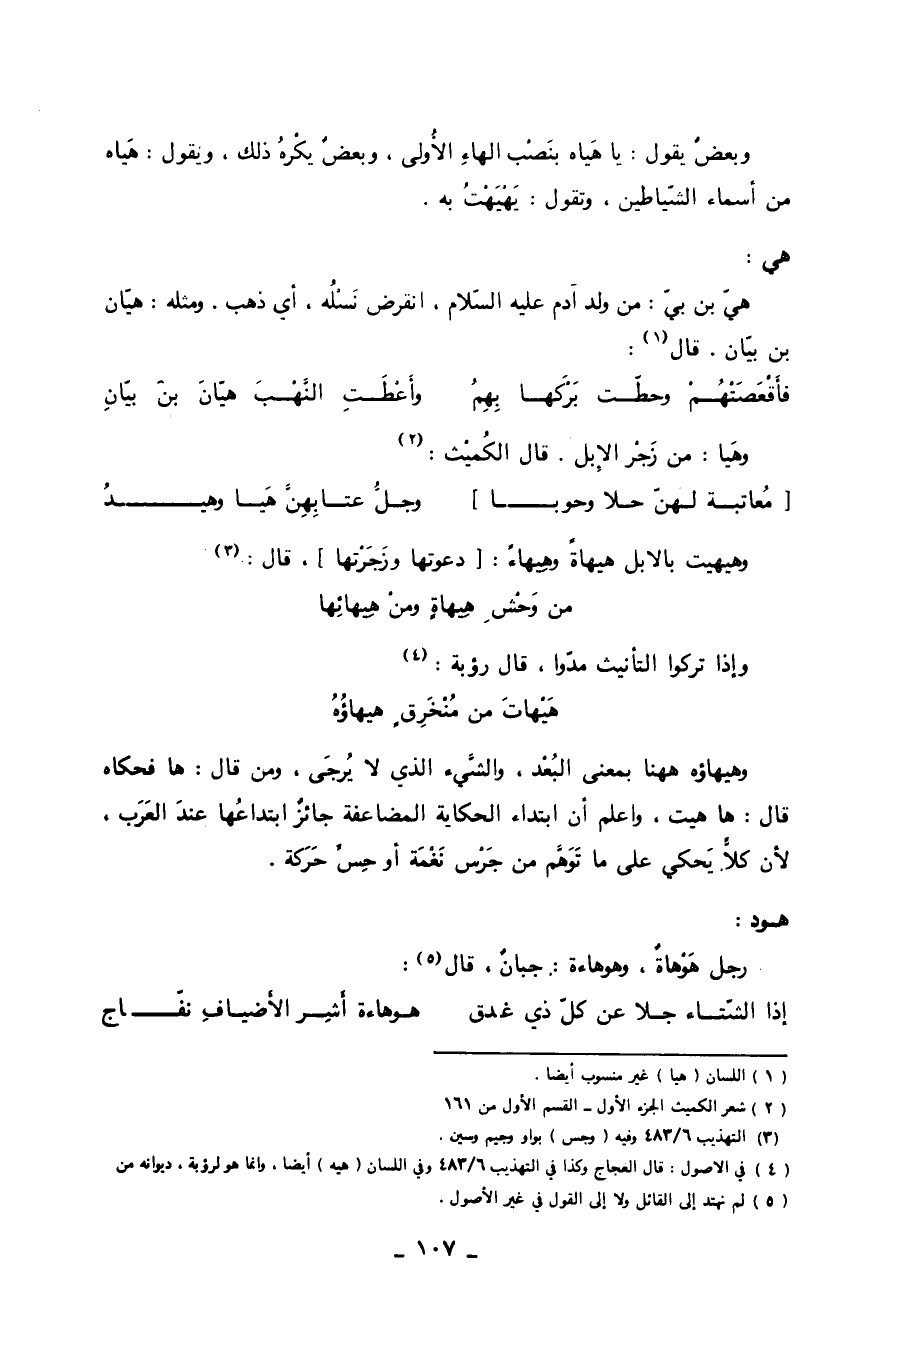 وبعضٌ يقول : يا هَياه بنَصْب الهاءِ الأُولى ، وبعضٌ يكْرهُ ذلك ، ويَقول : هَياه
من أسماء الشّياطين ، وتقول : يَهْيَهْتُ به .
هي :
هيّ بن بيّ : من ولد آدم عليه السّلام ، انقرض نَسْلُه ، أي ذهب . ومثله : هيّان
بن بيّان . قال(١) :
فأَقْعَصَتْهُـمْ وحطّـت بَرْكَهـا بِهِمُ وأَعْطَـتِ النَّهْـبَ هيّانَ بنَ بيّانِ
وهَيا : من زَجْر الإبل . قال الكُميْت : (٢)
[ مُعاتبـة لـهنّ حـلا وحوبـا ] وجـلُّ عتـابِهِنَّ هَيـا وهيـدُ
وهيهيت بالابل هيهاةً وهِيهاءً : [ دعوتها وزَجَرْتها ] ، قال : (٣)
من وَحْشِ هِيهاةٍ ومنْ هِيهائِها
وإذا تركوا التأنيث مدّوا ، قال رؤبة : (٤)
هَيْهاتَ من مُنْخَرِقٍ هيهاؤُهُ
وهيهاؤه ههنا بمعنى البُعْد ، والشَّيء الذي لا يُرجَى ، ومن قال : ها فحكاه
قال : ها هيت ، واعلم أن ابتداء الحكاية المضاعفة جائزٌ ابتداعُها عندَ العَرَب ،
لأن كلاًّ يَحكي على ما تَوَهَّم من جَرْس نَغْمَة أو حِسِّ حَرَكة .
هـود :
رجل هَوْهاةٌ ، وهوهاءة : جبانٌ ، قال(٥) :
إذا الشّتـاء جـلا عن كلّ ذي غـدق هـوهاءة أشِـر الأضيـافِ نفّـاج
( ١ ) اللسان ( هيا ) غير منسوب أيضا .
( ٢ ) شعر الكميت الجزء الأول ــ القسم الأول من ١٦١
(٣) التهذيب ٤٨٣/٦ وفيه ( وجس ) بواو وجيم وسين .
( ٤ ) في الاصول : قال العجاج وكذا في التهذيب ٤٨٣/٦ وفي اللسان ( هيه ) أيضا ، وانما هو لرؤبة ، ديوانه من
( ٥ ) لم نهتد إلى القائل ولا إلى القول في غير الأصول .
ــ ١٠٧ ــ